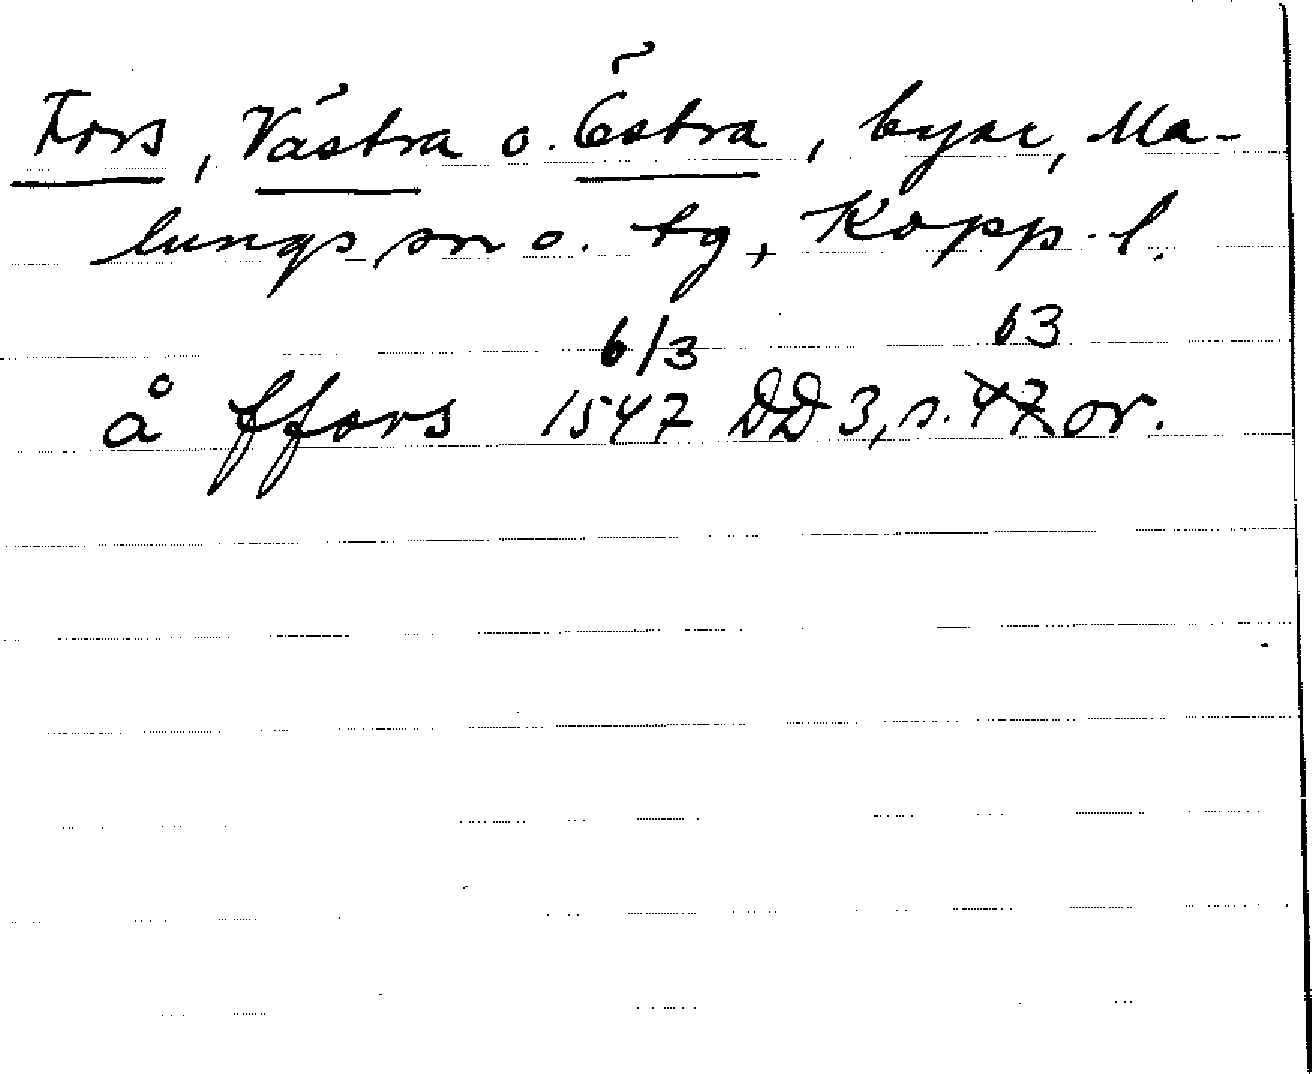 Fors, Västra o. Östra, byar, Ma-
lungs sn o. tg, Kopp. l.
6/3 63
å ffors 1547 DD 3, s. 47 or.